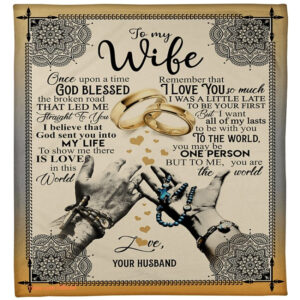 To my
Wife
Once upon a time
GOD BLESSED
the broken road
THAT LED ME
Straight To You
I believe that
God sent you into
MY LIFE
To show me there
IS LOVE
in this
World
Remember that
I LOVE YOU so much
I WAS A LITTLE LATE
TO BE YOUR FIRST
But I want
all OF MY LASTS
to be with you
TO THE WORLD,
you may be
ONE PERSON
BUT TO ME, you are
the world
Love,
YOUR HUSBAND